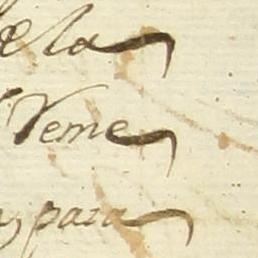 de la
Veme
para